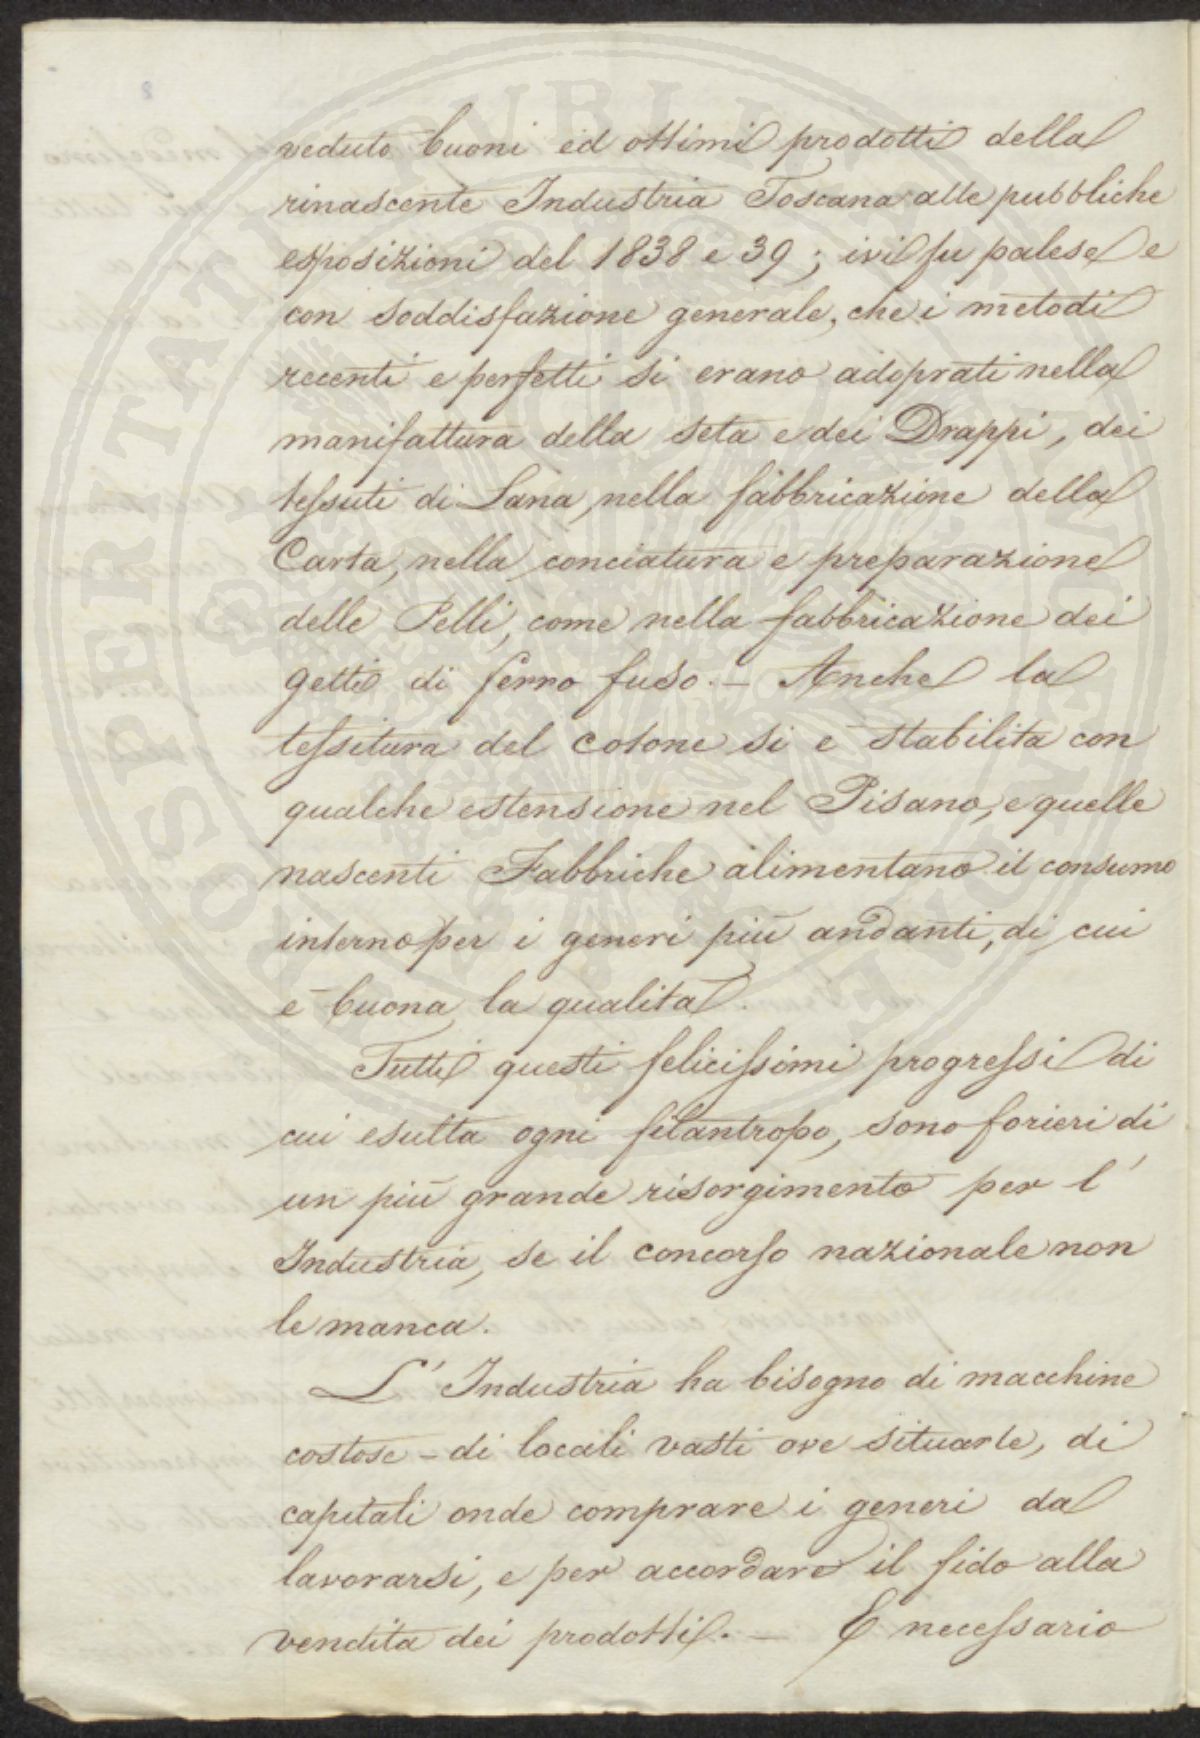 veduto buoni ed ottimi prodotti della
rinascente Industria Toscana alle pubbliche
esposizioni del 1838 e 39; ivi fu palese e
con soddisfazione generale, che i metodi
recenti e perfetti si erano adoprati nella
manifattura della seta e dei Drappi, dei
tessuti di Lana, nella fabbricazione della
Carta, nella conciatura e preparazione
delle Pelli, come nella fabbricazione dei
getti di ferro fuso. – Anche la
tessitura del cotone si e stabilita con
qualche estensione nel Pisano, e quelle
nascenti Fabbriche alimentano il consumo
interno per i generi più andanti, di cui
è buona la qualità.
Tutti questi felicissimi progressi di
cui esulta ogni filantropo, sono forieri di
un più grande risorgimento per l'
Industria, se il concorso nazionale non
le manca.
L'Industria ha bisogno di macchine
costose – di locali vasti ove situarle, di
capitali onde comprare i generi da
lavorarsi, e per accordare il fido alla
vendita dei prodotti. – E necessario